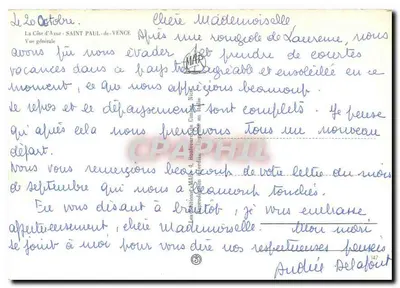 Le 20 Octobre.
Chère Mademoiselle
La Côte d'Azur - SAINT PAUL-de-VENCE
Vue générale
Après une rougeole de Laurence, nous
avons pu nous évader et prendre de courtes
vacances dans ce pays agréable et ensoleillé en ce
moment, ce que nous apprécions beaucoup.
Le repos et le dépaysement sont complets. Je pense
qu'après cela nous prendrons tous un nouveau
départ.
Nous vous remercions beaucoup de votre lettre du mois
de septembre qui nous a beaucoup touchés.
En vous disant à bientôt, je vous embrasse
affectueusement, chère Mademoiselle. Mon mari
se joint à moi pour vous dire nos respectueuses pensées
Andrée Delafont
MAR
CPAPHIL